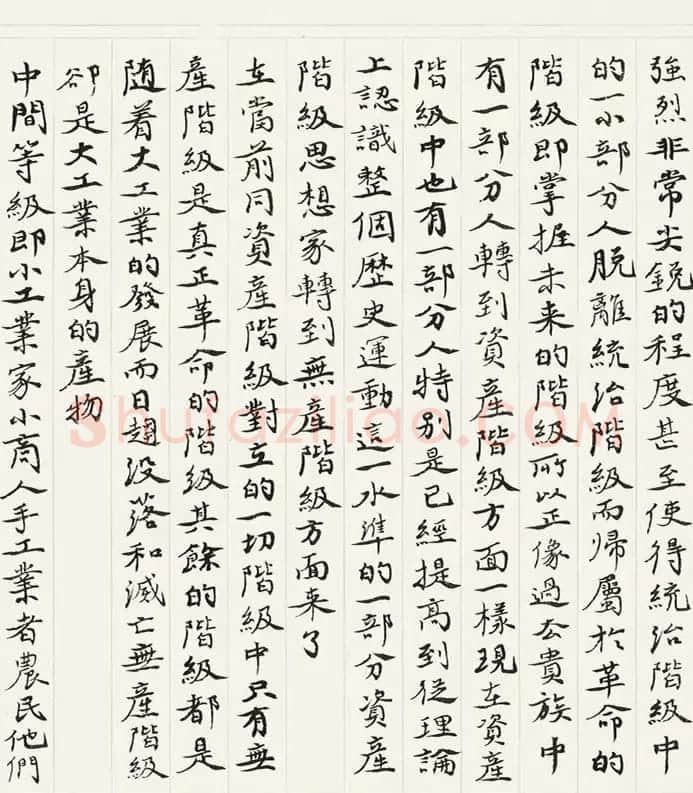 強烈非常尖銳的程度甚至使得統治階級中
的一小部分人脫離統治階級而歸屬於革命的
階級即掌握未来的階級所以正像過去貴族中
有一部分人轉到資産階級方面一樣現在資産
階級中也有一部分人特别是已經提高到從理論
上認識整個歷史運動這一水準的一部分資産
階級思想家轉到無産階級方面来了
在當前同資産階級對立的一切階級中只有無
産階級是真正革命的階級其餘的階級都是
随着大工業的發展而日趨没落和滅亡無産階級
卻是大工業本身的産物
中間等級即小工業家小商人手工業者農民他們
shufaziliao.COM